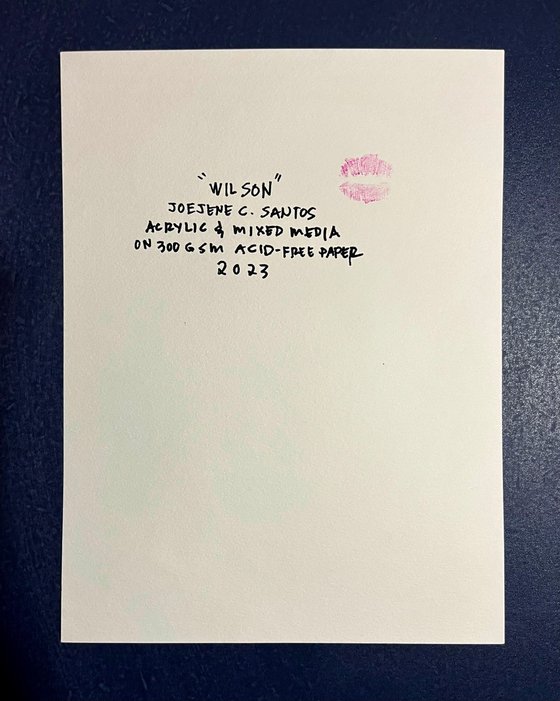 "WILSON"
JOEJENE C. SANTOS
ACRYLIC & MIXED MEDIA
ON 300 GSM ACID-FREE PAPER
2023